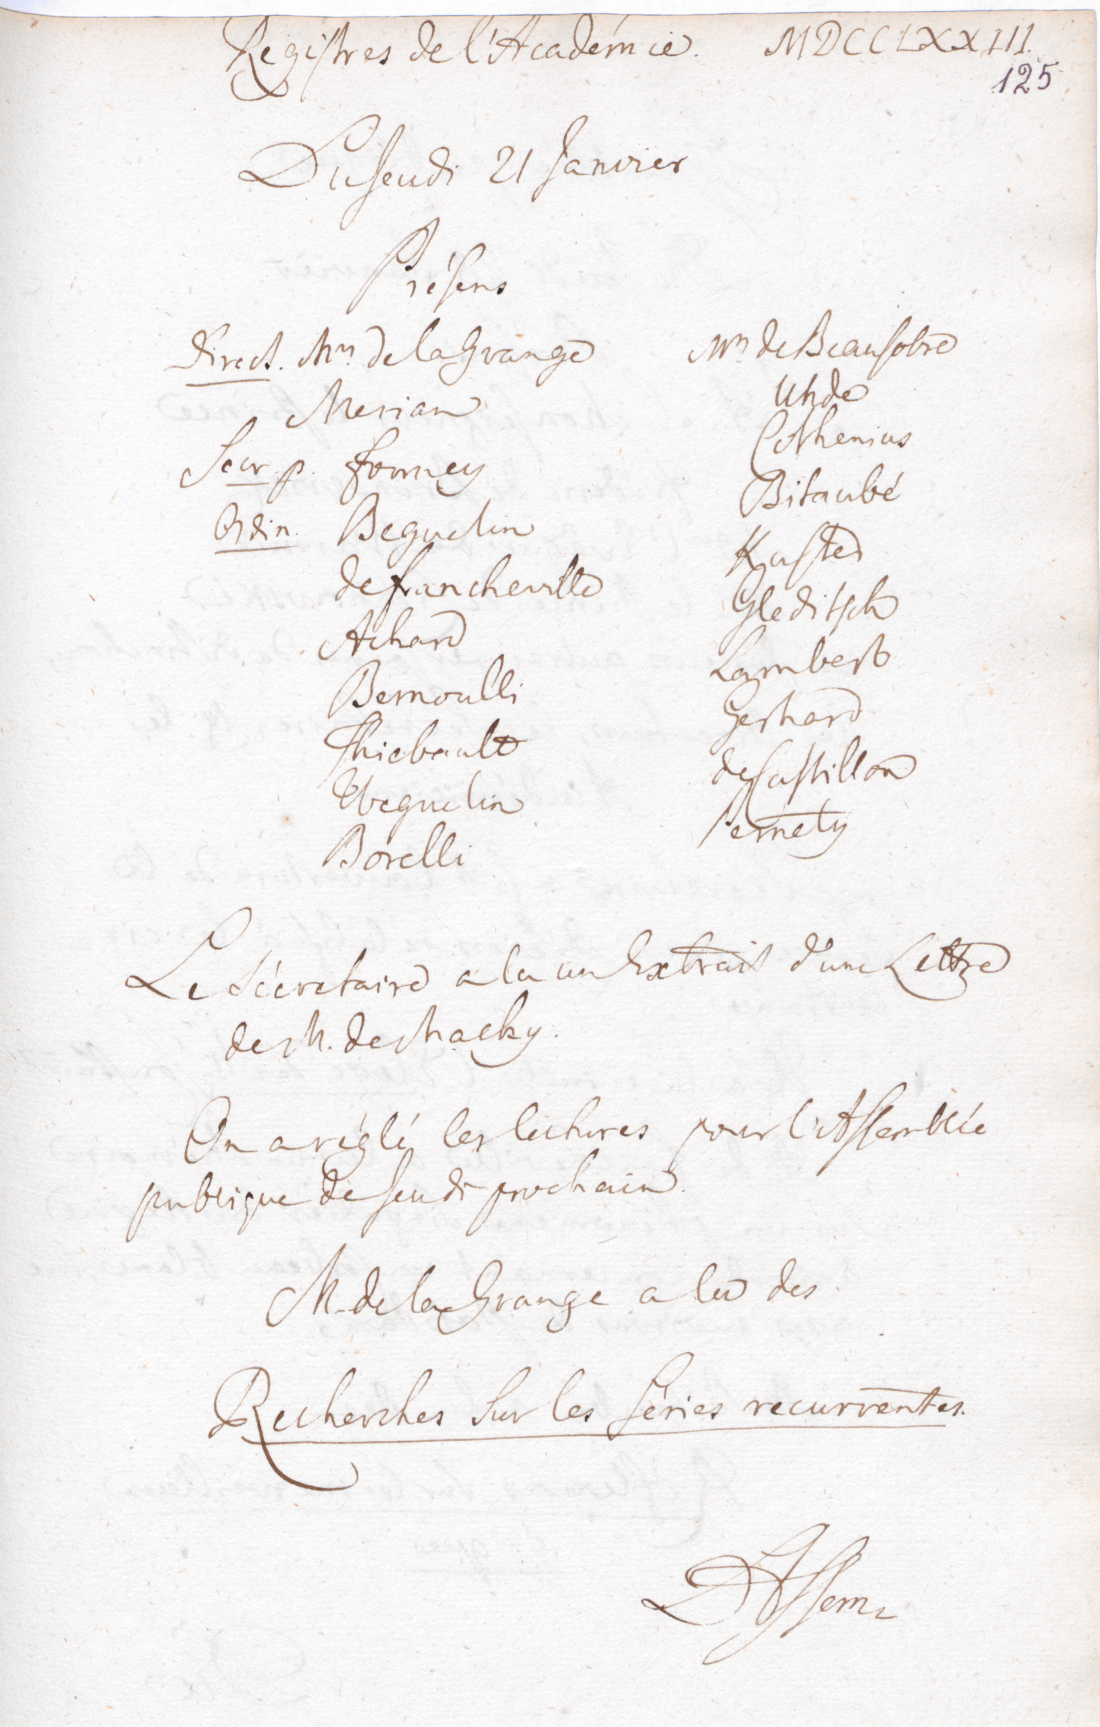 Registres de l'Académie. MDCCLXXIII.
125
Du Jeudi 21 Janvier
Présens
Direct. Mrs de la Grange
Merian
Secr. p. Formey
Ordin. Beguelin
de Francheville
Achard
Bernoulli
Thiebault
Weguelin
Borelli
Mrs de Beausobre
Uhde
Cothenius
Bitaubé
Kuster
Gleditsch
Lambert
Gerhard
de Castillon
Pernety
Le Sécretaire a lu un Extrait d'une Lettre
de M. de Machy.
On a réglé les lectures pour l'Assemblée
publique de Jeudi prochain.
M. de la Grange a lu des
Recherches sur les Séries recurrentes.